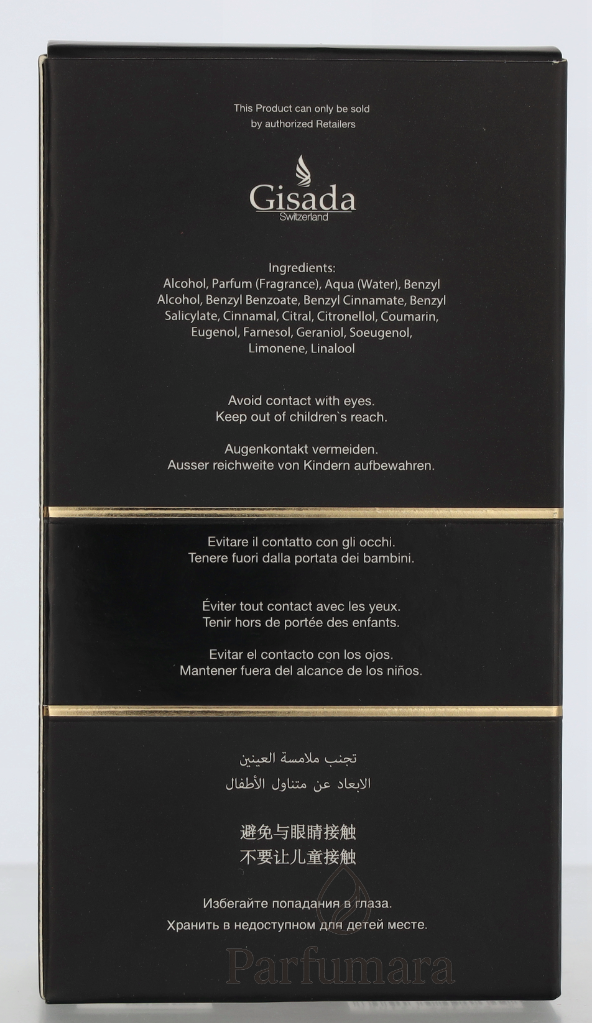 This Product can only be sold
by authorized Retailers
Gisada
Switzerland
Ingredients:
Alcohol, Parfum (Fragrance), Aqua (Water), Benzyl
Alcohol, Benzyl Benzoate, Benzyl Cinnamate, Benzyl
Salicylate, Cinnamal, Citral, Citronellol, Coumarin,
Eugenol, Farnesol, Geraniol, Soeugenol,
Limonene, Linalool
Avoid contact with eyes.
Keep out of children`s reach.
Augenkontakt vermeiden.
Ausser reichweite von Kindern aufbewahren.
Evitare il contatto con gli occhi.
Tenere fuori dalla portata dei bambini.
Éviter tout contact avec les yeux.
Tenir hors de portée des enfants.
Evitar el contacto con los ojos.
Mantener fuera del alcance de los niños.
تجنب ملامسة العينين
الابعاد عن متناول الأطفال
避免与眼睛接触
不要让儿童接触
Избегайте попадания в глаза.
Хранить в недоступном для детей месте.
Parfumara